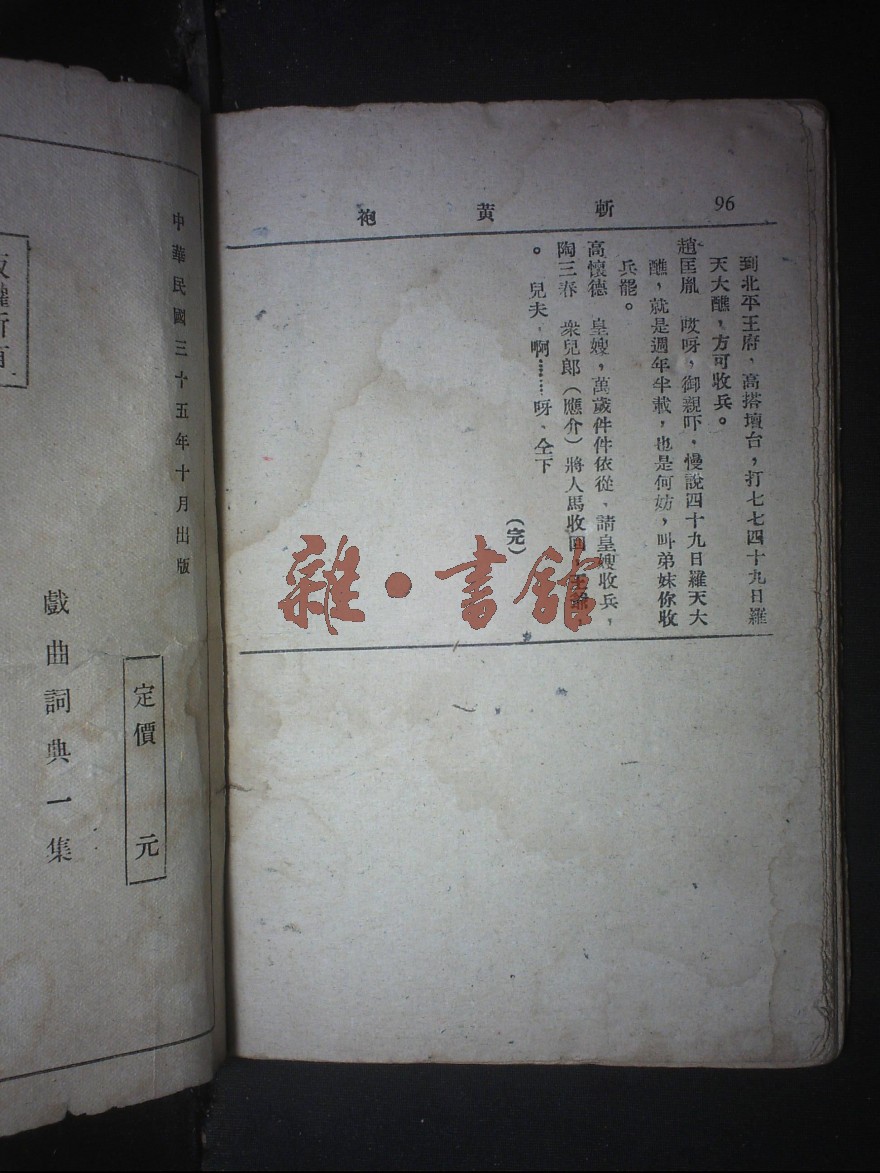 96
斬黃袍
到北平王府，高搭壇台，打七七四十九日羅
天大醮，方可收兵。
趙匡胤　哎呀，御親吓，慢說四十九日羅天大
醮，就是週年半載，也是何妨，叫弟妹你收
兵罷。
高懷德　皇嫂，萬歲件件依從、請皇嫂收兵，
陶三春　衆兒郎（應介）將人馬收回，王爺，
。　兒夫，啊……呀、仝下
（完）
雜·書館
中華民國三十五年十月出版
定價　元
戲曲詞典一集
版權所有